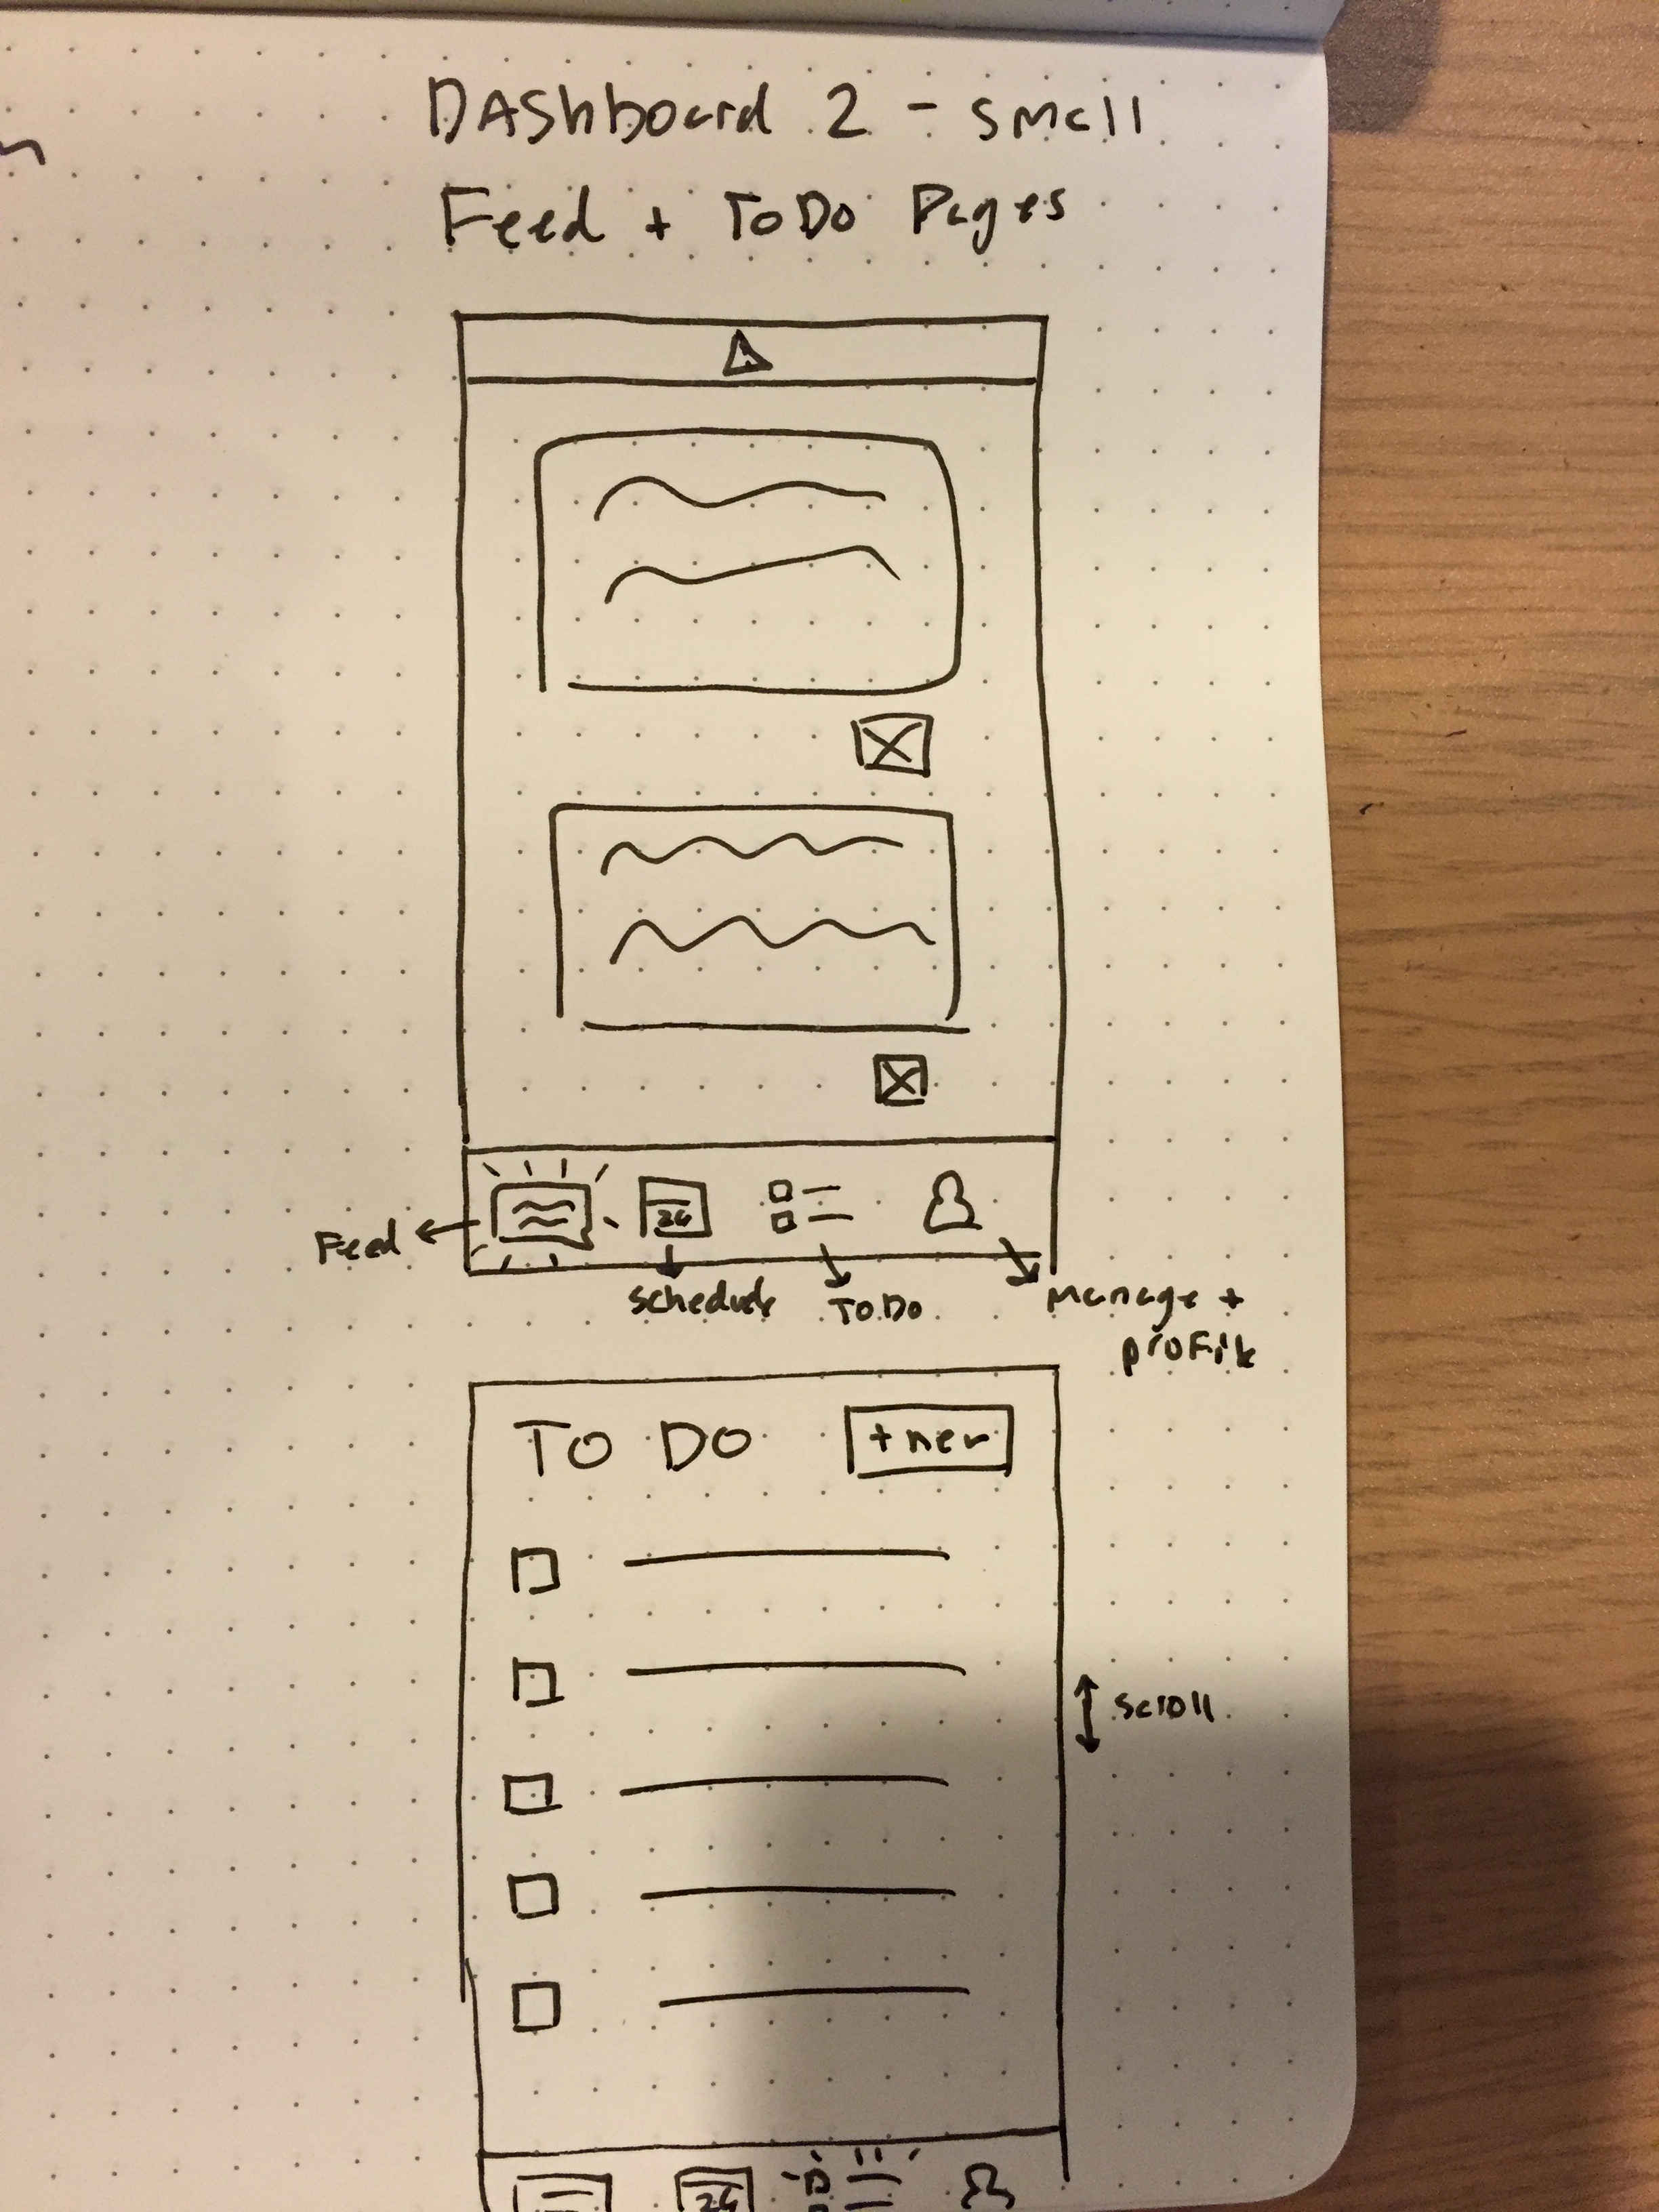 DAshboard 2 - small
Feed + ToDo Pages
Feed
26
schedule
ToDo
Manage +
profile
TO DO
+ new
scroll
26